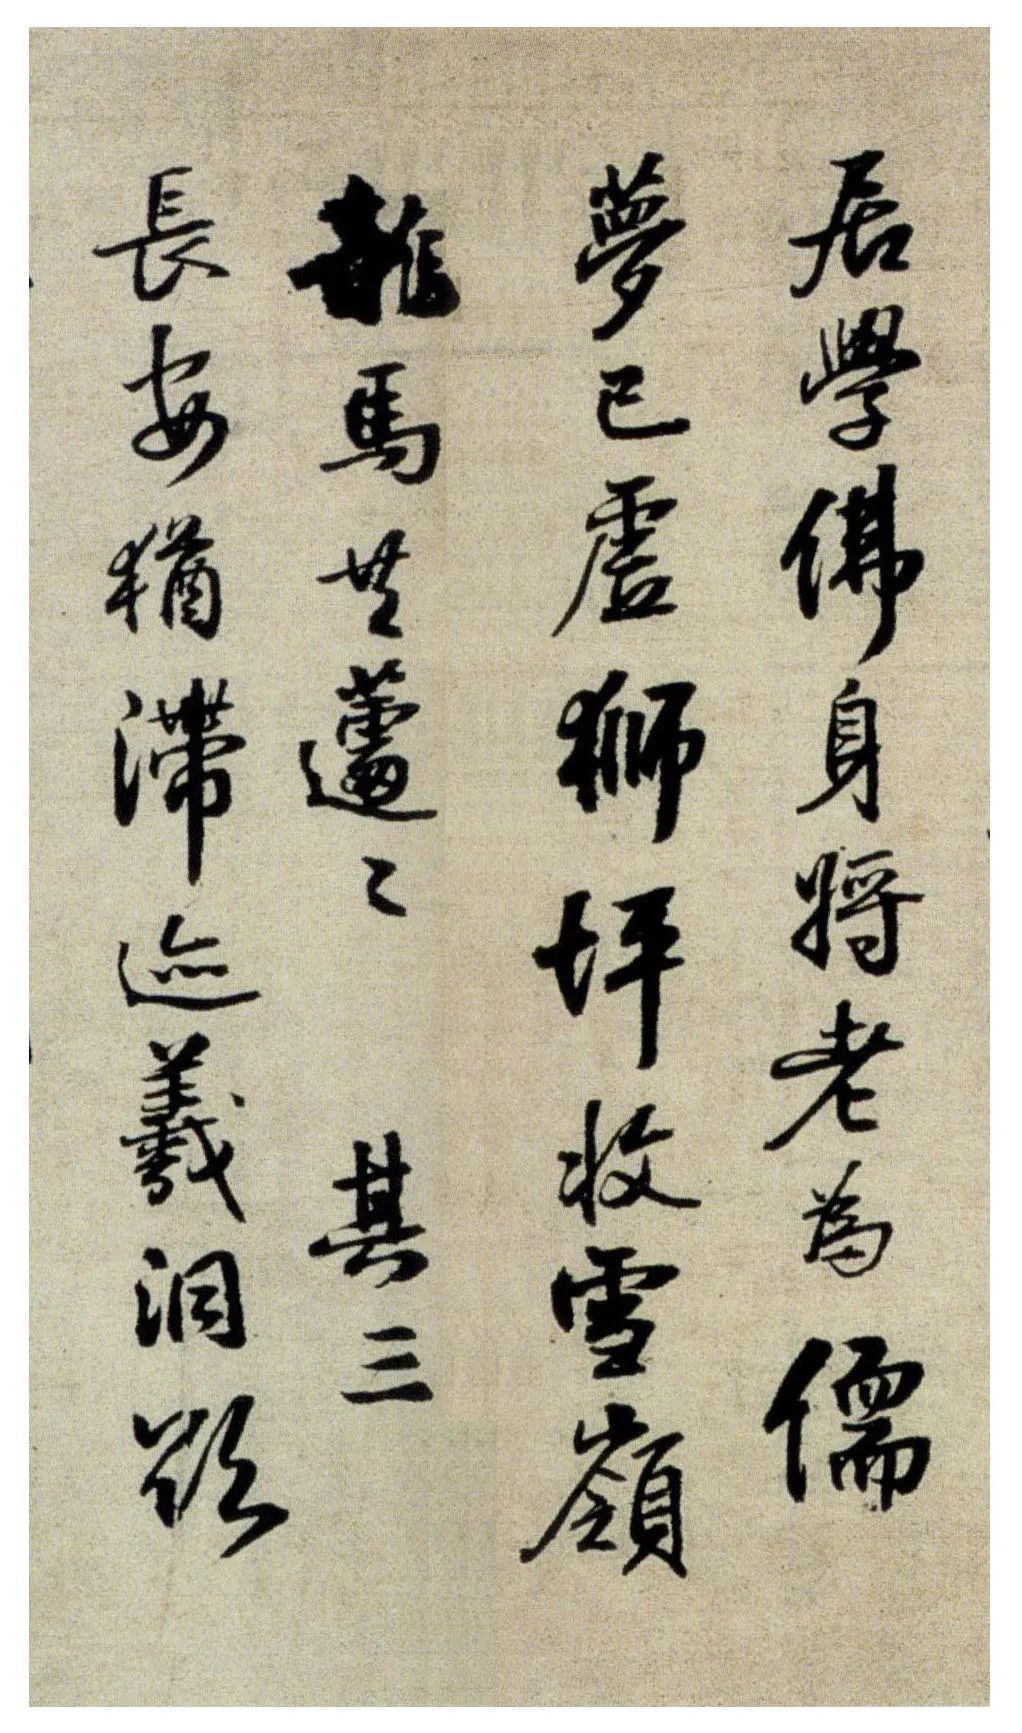 居學佛身將老為儒
夢已虛獅坪收雪嶺
龍馬共蘧々 其三
長安猶滯迹羲洞欲